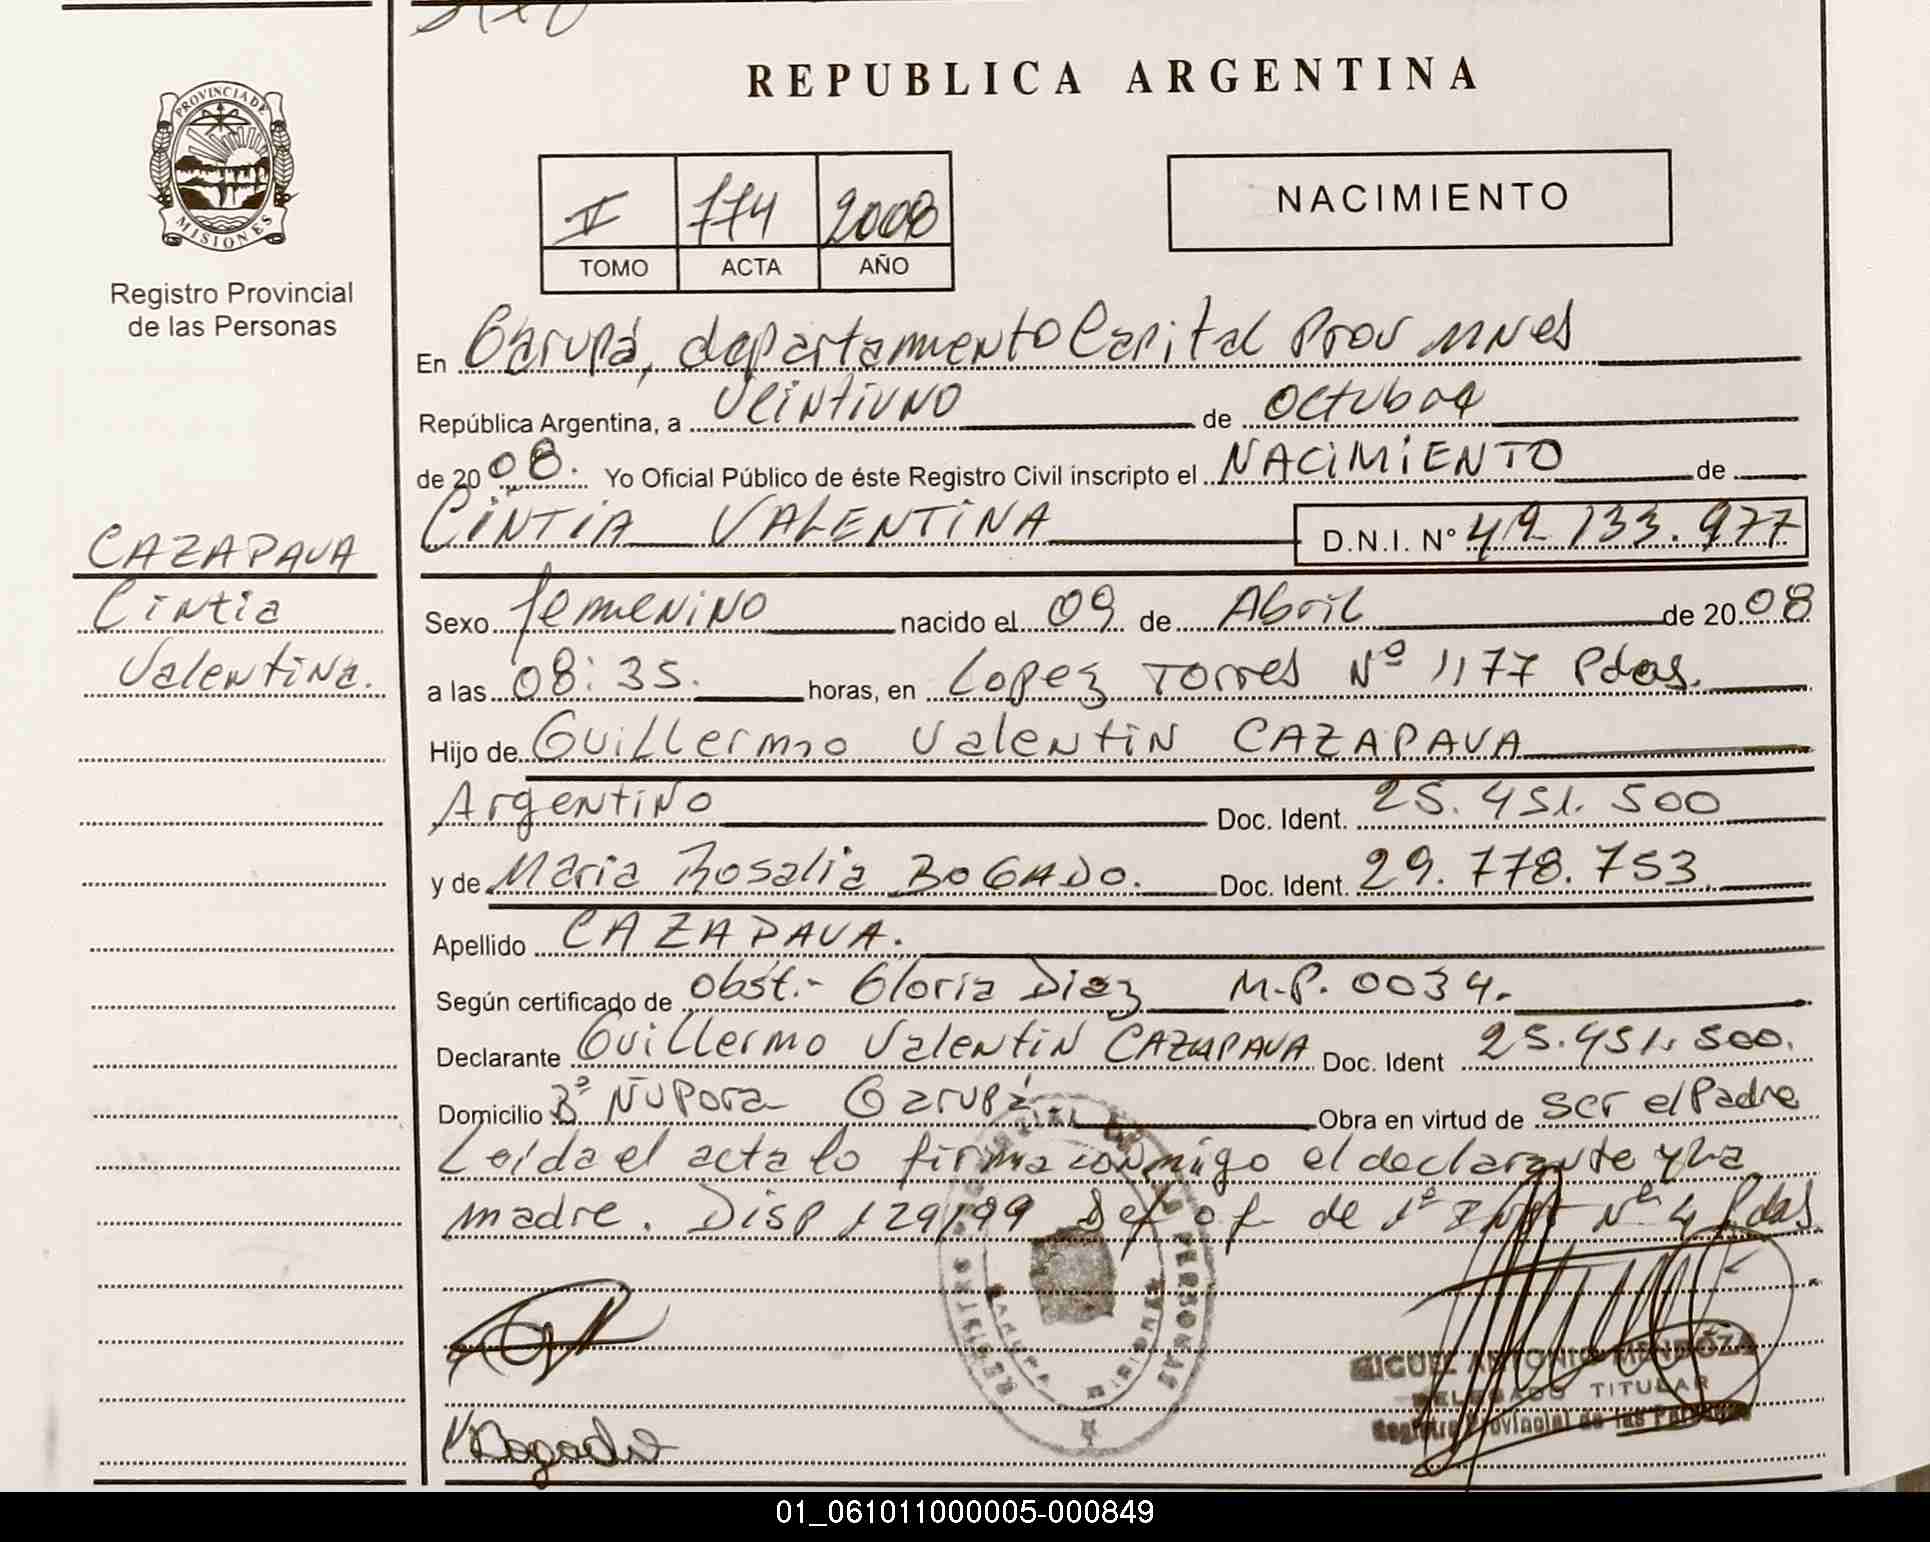 REPUBLICA ARGENTINA
PROVINCIA DE
MISIONES
Registro Provincial
de las Personas
774 2008
TOMO ACTA AÑO
NACIMIENTO
En Garupá, departamento Capital Prov Mnes
República Argentina, a Veintiuno de octubre
de 2008. Yo Oficial Público de éste Registro Civil inscripto el NACIMIENTO de
CINTIA VALENTINA D.N.I. N° 49.133.977
CAZAPAVA
Cintia
Valentina.
Sexo femenino nacido el 09 de Abril de 2008
a las 08:35. horas, en Lopez Torres Nº 1177 Pdas.
Hijo de Guillermo Valentin CAZAPAVA
Argentino Doc. Ident. 25.451.500
y de Maria Rosalia BOGADO. Doc. Ident. 29.778.753
Apellido CAZAPAVA.
Según certificado de obst.- Gloria Diaz M.P. 0034.
Declarante Guillermo Valentin CAZAPAVA Doc. Ident 25.451.500.
Domicilio Bº Ñu Pora Garupá Obra en virtud de ser el Padre
Leida el acta lo firma conmigo el declarante y La
madre. Disp 129/99 Def of de 1ª Inst Nº 4 Pdas
REGISTRO PROVINCIAL DE LAS PERSONAS
GARUPA MISIONES
MIGUEL ANTONIO MENDOZA
DELEGADO TITULAR
Registro Provincial de las Personas
Bogado
01_061011000005-000849